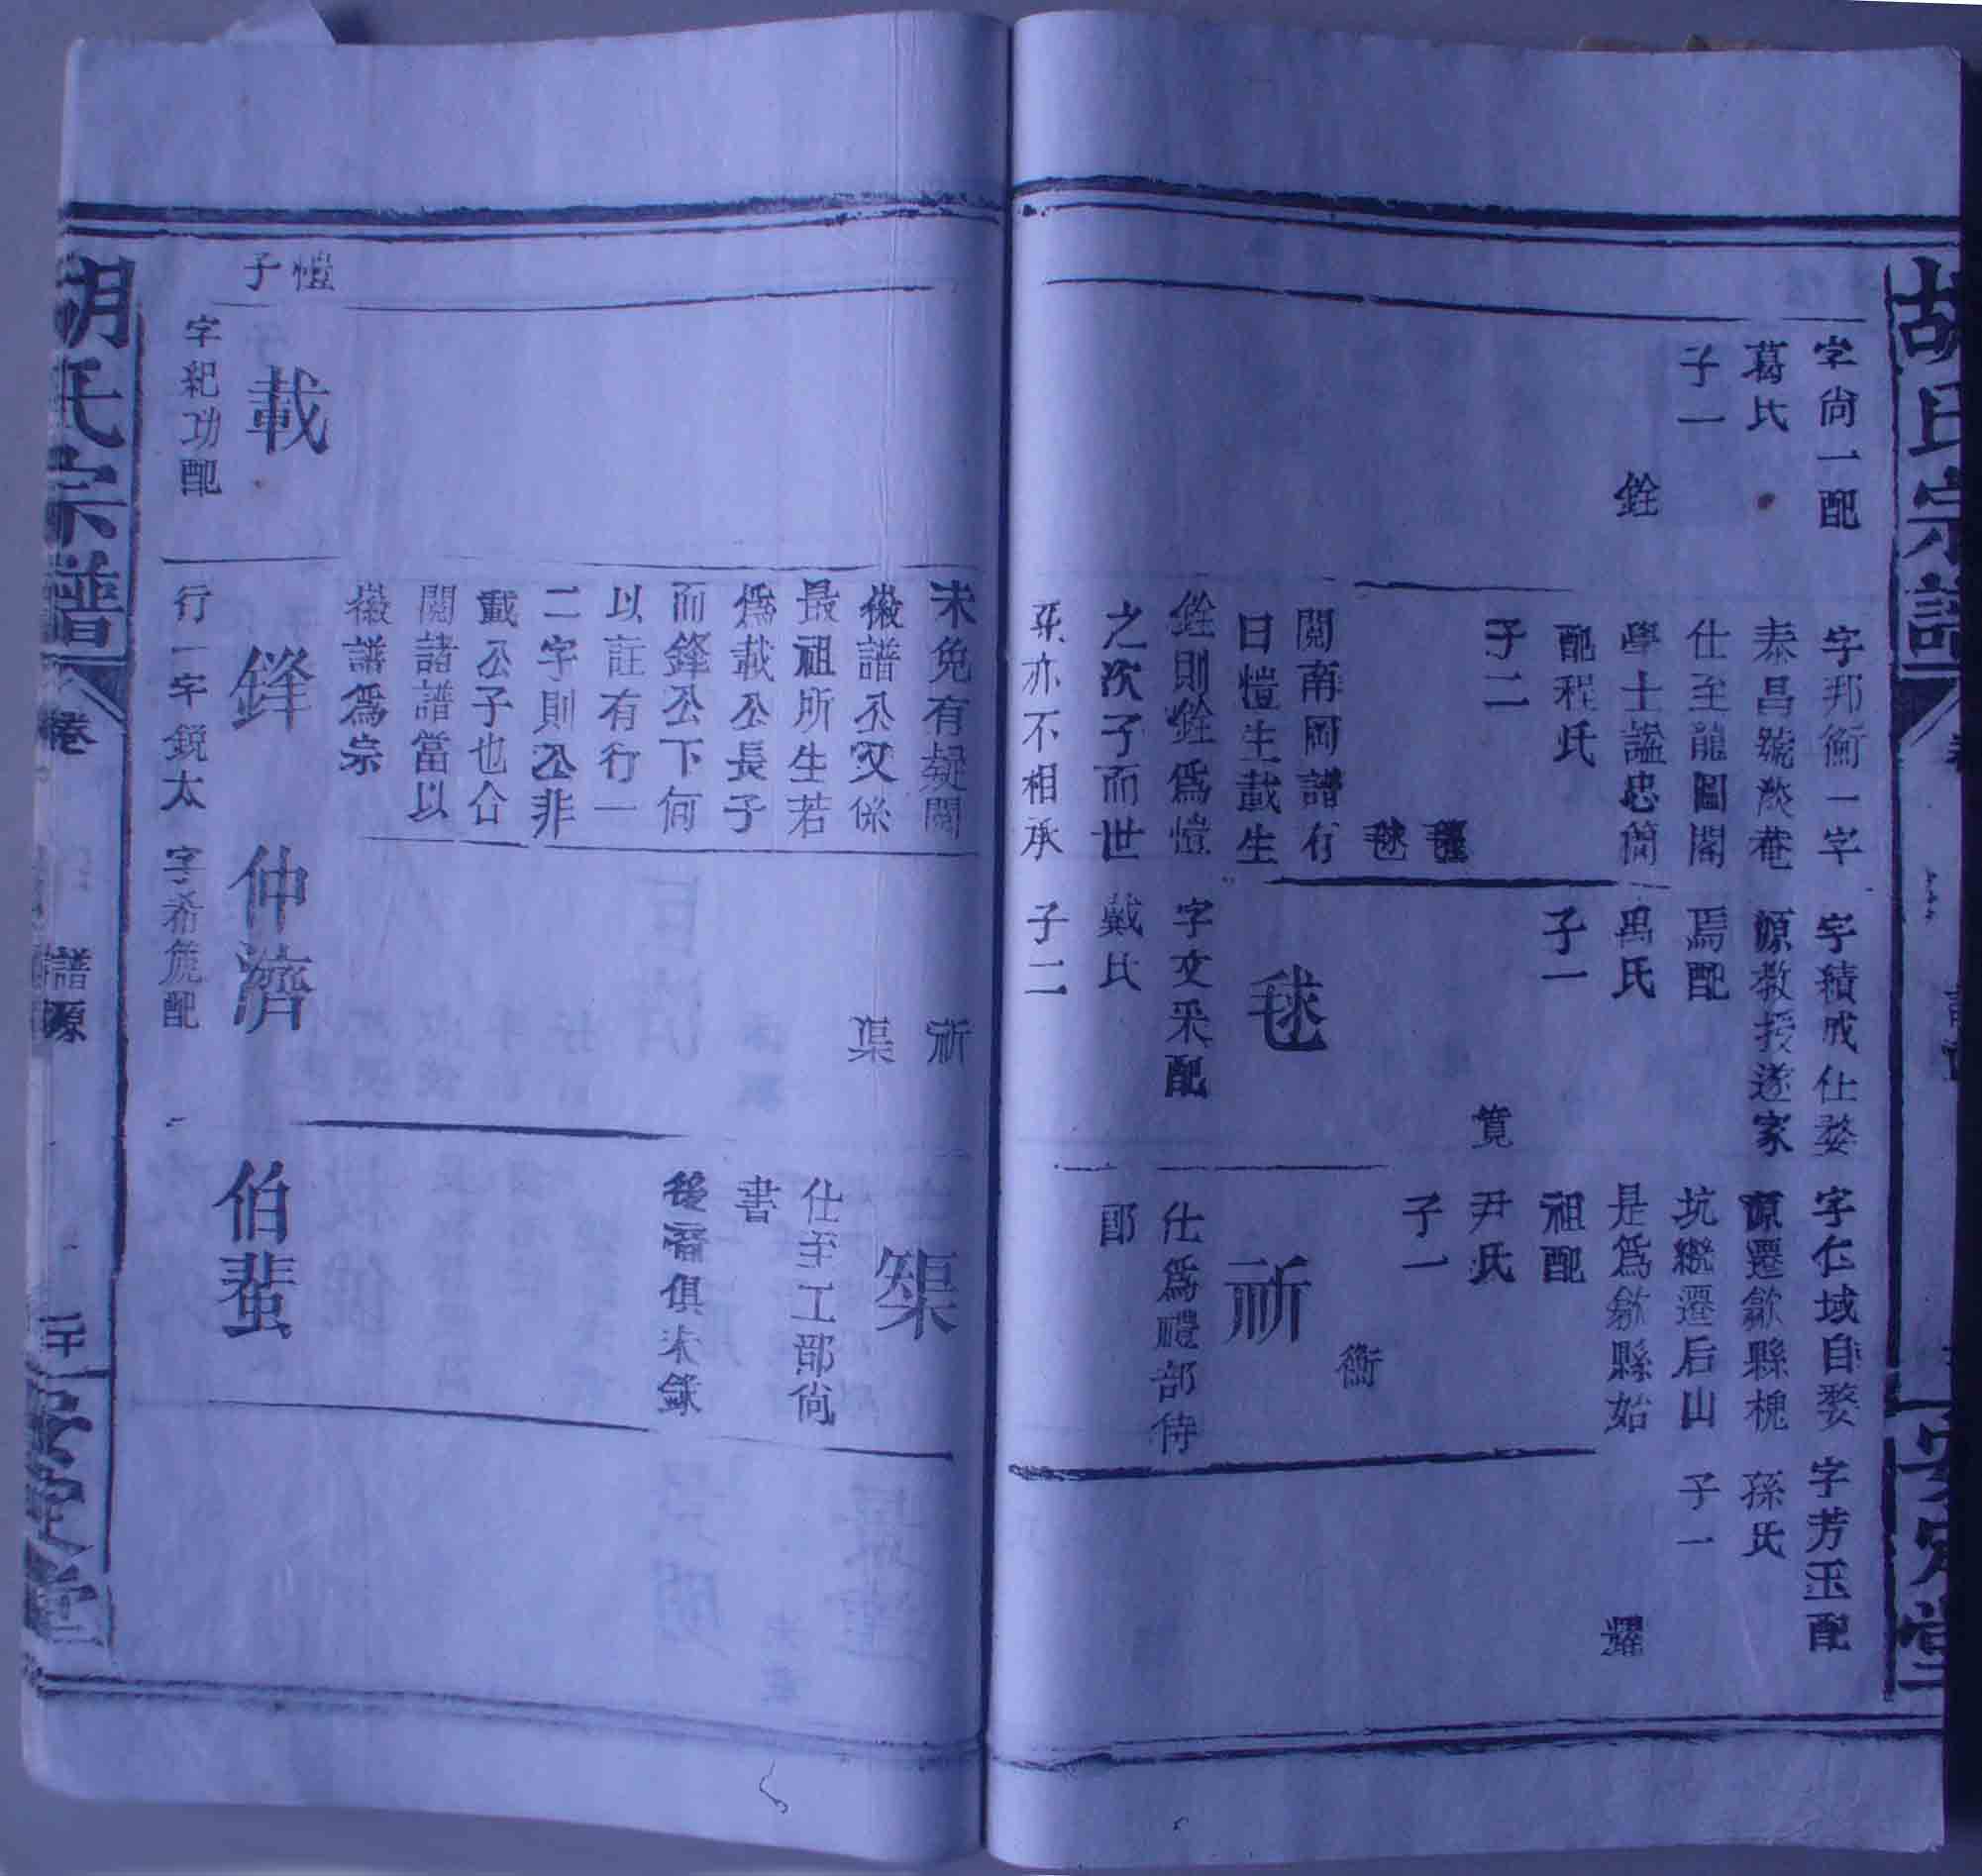 胡氏宗譜
安定堂
字尙一配
葛氏
子一
銓
字邦衡一字
泰昌號淡菴
仕至龍圖閣
學士謚忠簡
配程氏
子二
毬
閱南岡譜有
曰愷生載生
銓則銓爲愷
之次子而世
系亦不相承
字績成仕婺
源敎授遂家
焉配
禹氏
子一
寬
毬
字文采配
戴氏
子二
字仁域自婺
源遷歙縣槐
坑繼遷后山
是爲歙縣始
祖配
尹氏
子一
衡
祈
仕爲禮部侍
郎
字芳玉配
孫氏
子一
耀
未免有疑閱
徽譜公父係
最祖所生若
爲載公長子
而鋒公下何
以註有行一
二字則公非
載公子也合
閱諸譜當以
徽譜爲宗
祈
榘
榘
仕至工部尙
書
後裔俱未錄
愷
子
載
字紀功配
鋒
行一字鏡太
仲濟
字希旄配
伯蜚
胡氏宗譜
卷
譜源
二十
安定堂